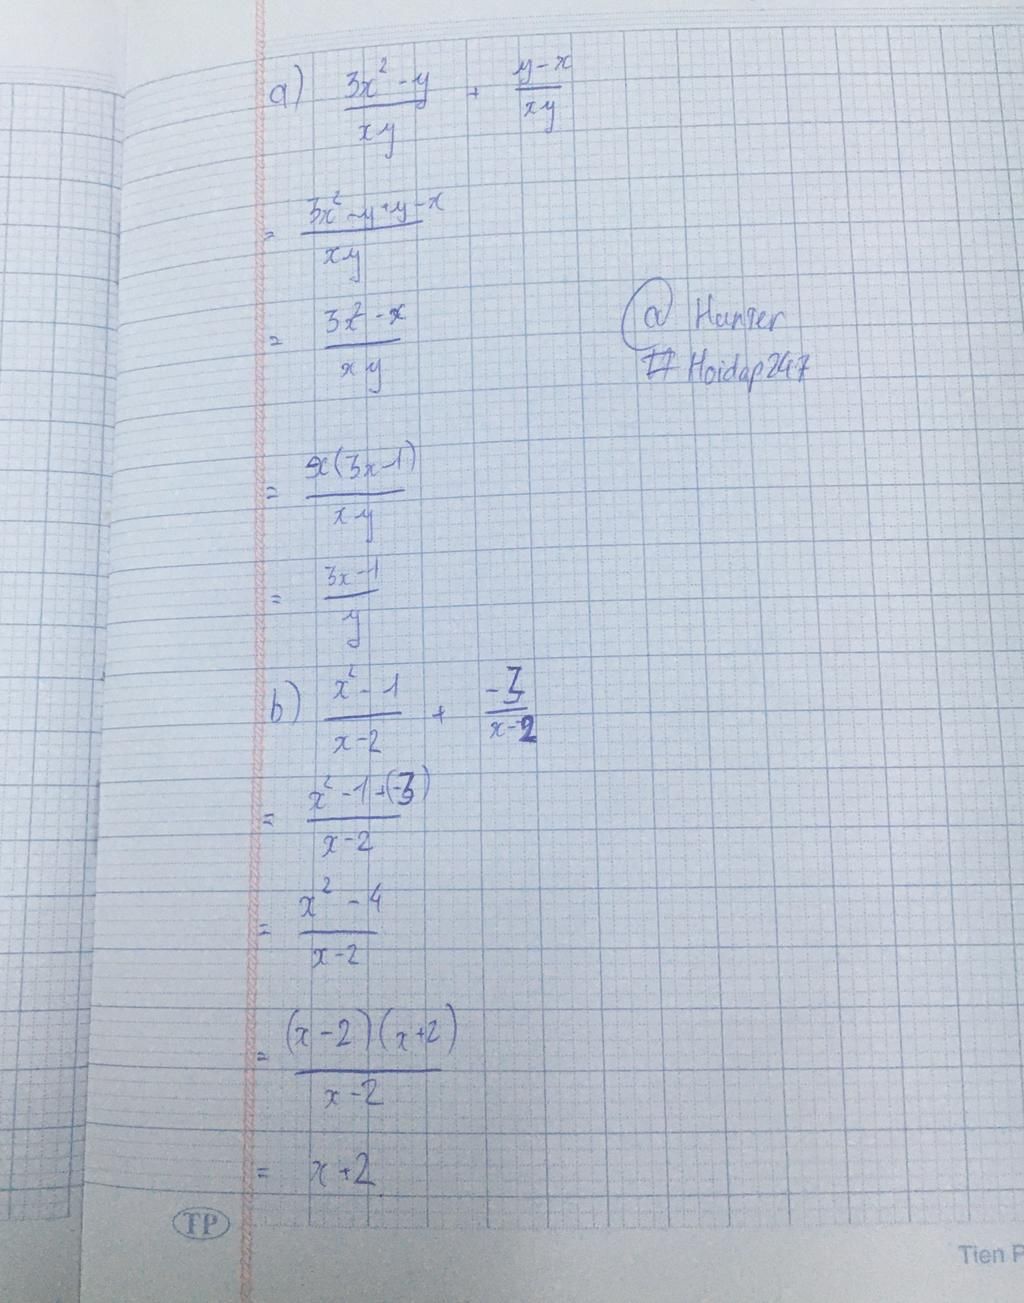 a) (3x² - y)/(xy) + (y - x)/(xy)
= (3x² - y + y - x)/(xy)
= (3x² - x)/(xy)
@ Hunter
# Hoidap247
= x(3x - 1)/(xy)
= (3x - 1)/y
b) (x² - 1)/(x - 2) + (-3)/(x - 2)
= (x² - 1 + (-3))/(x - 2)
= (x² - 4)/(x - 2)
= (x - 2)(x + 2)/(x - 2)
= x + 2
TP
Tien P